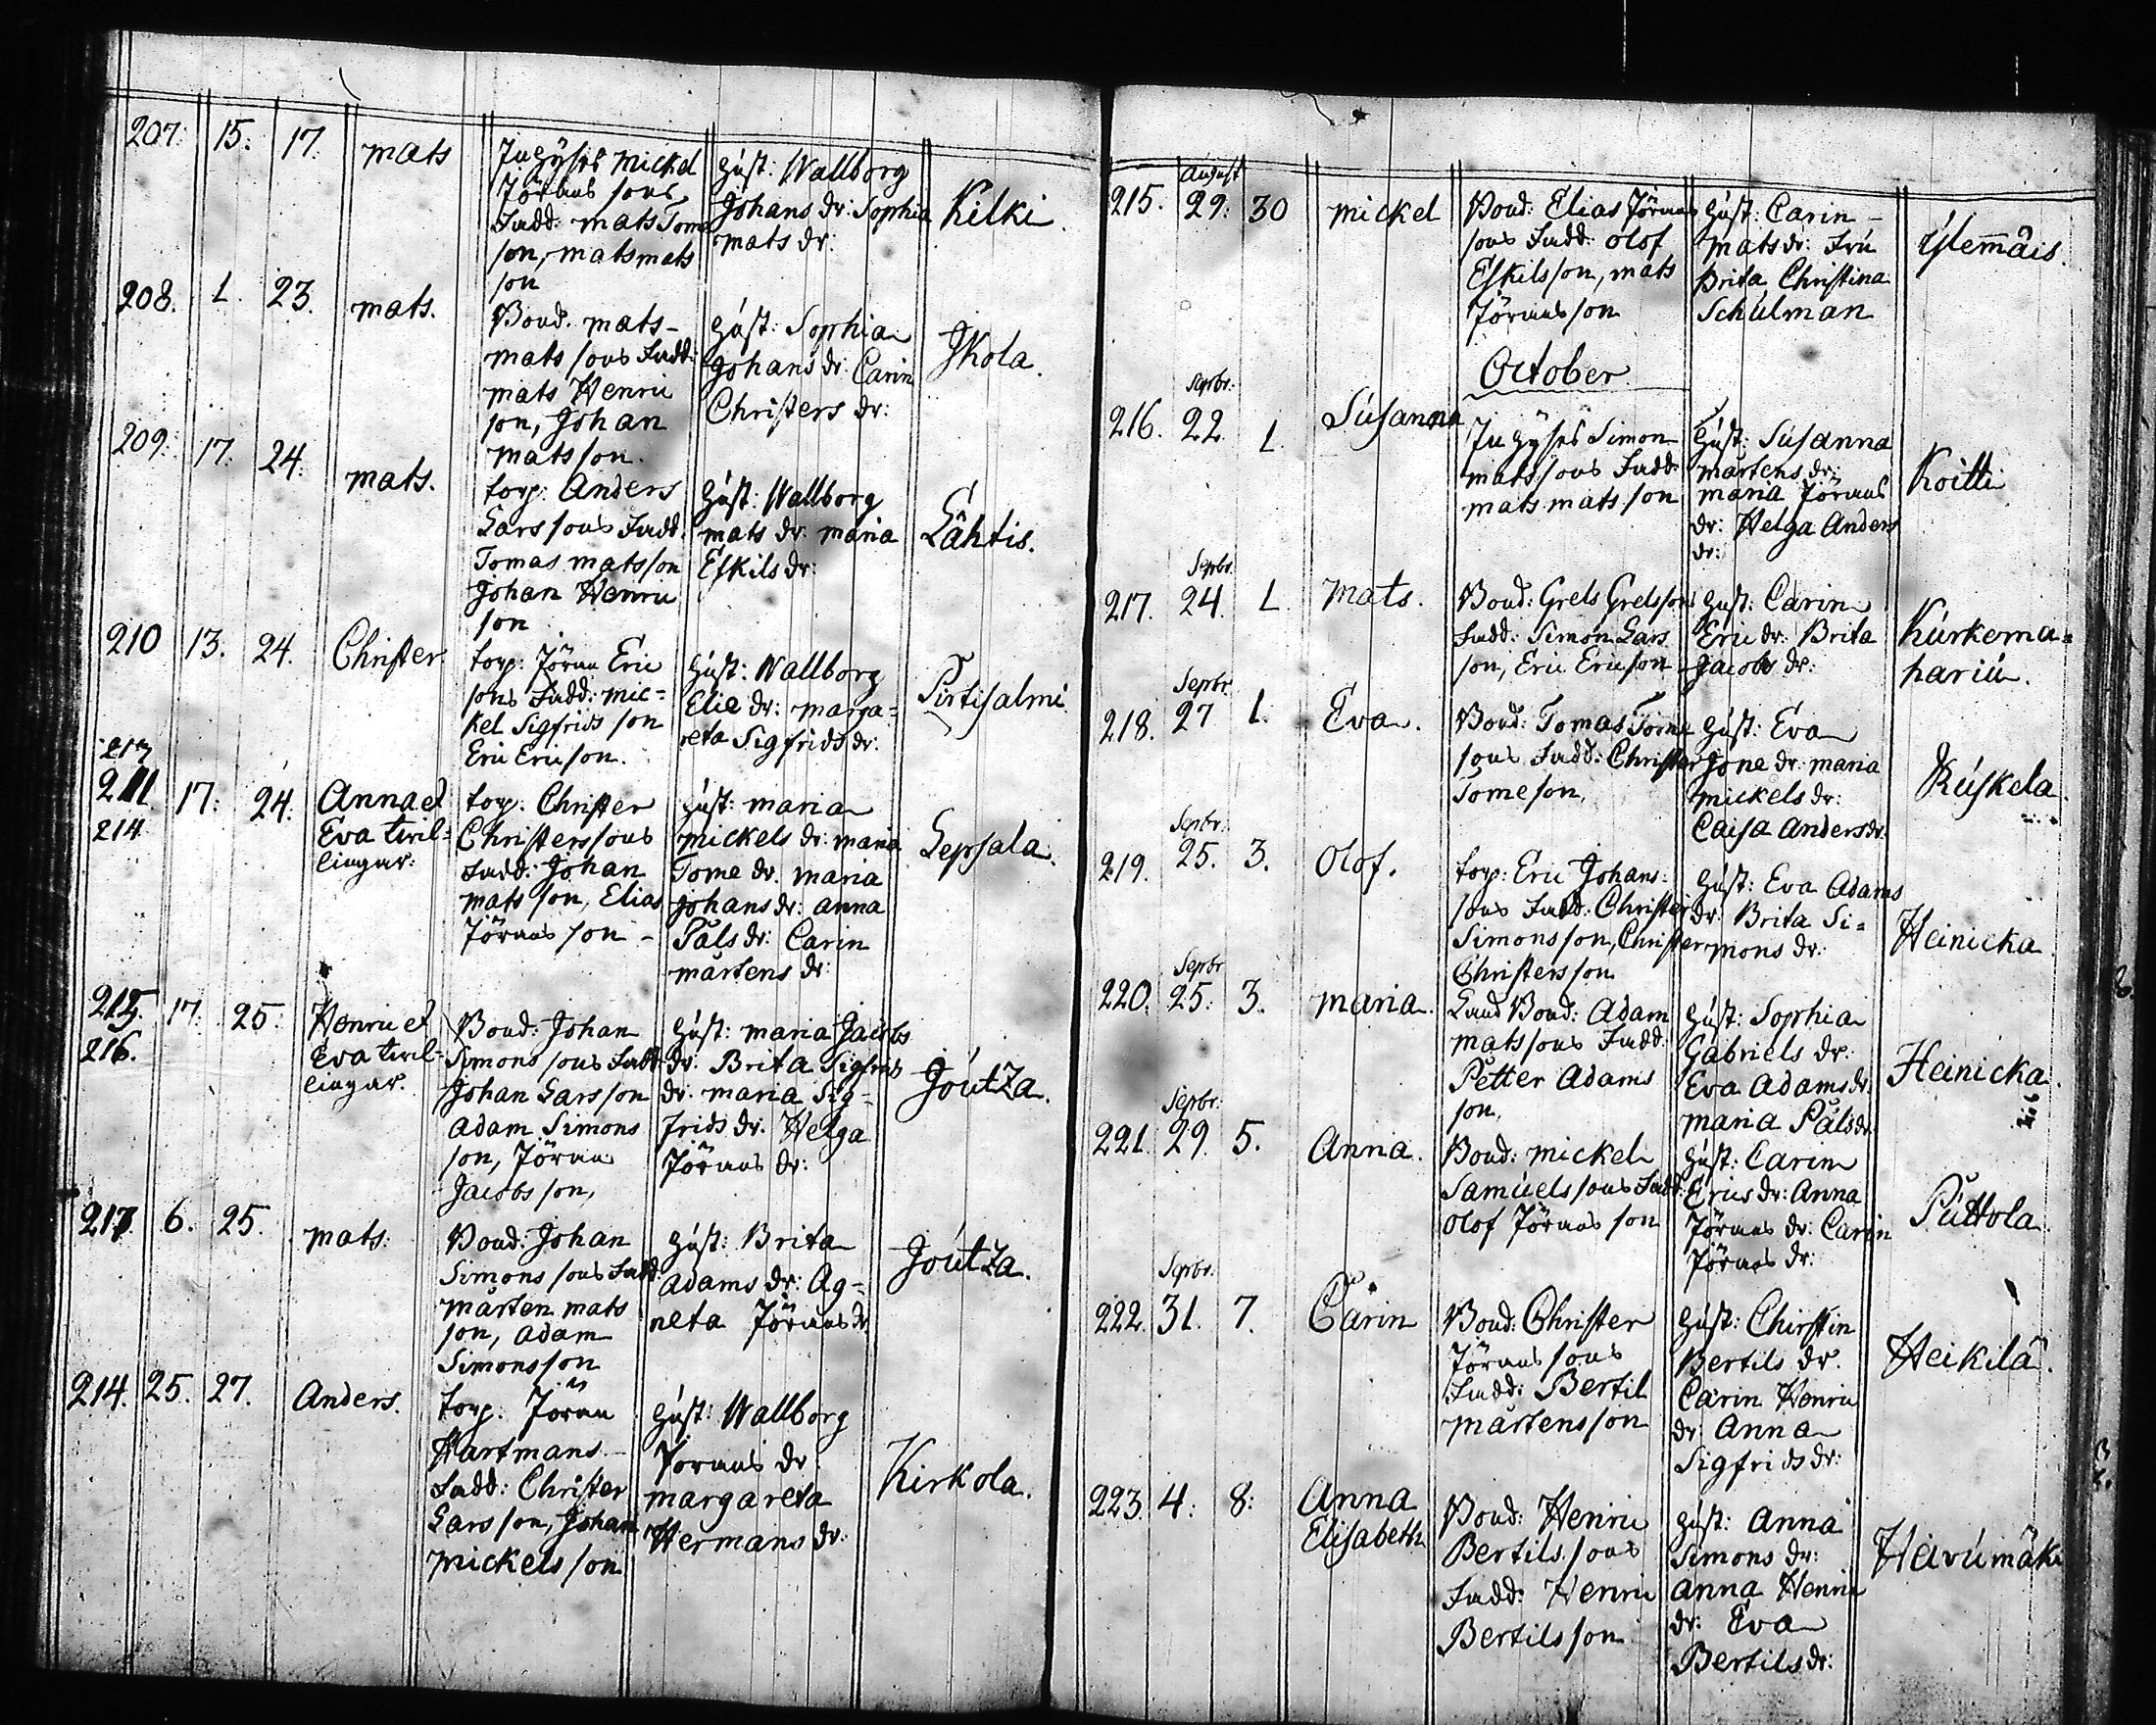 207. 15. 17. mats Inhyses Mickel Hust: Wallborg Kilki.
Jörans sons Johans dr: Sophia
Fadd: mats Tome mats dr:
son, mats mats
son
208. 1. 23. mats. Bond. mats- Hust: Sophia Jkola.
mats sons Fadd: Johans dr: Carin
mats Henric Christers dr:
son, Johan
mats son.
209. 17. 24. mats. torp: Anders Hust: Wallborg Lähtis.
Lars sons Fadd. mats dr: maria
Tomas matsson Eskils dr:
Johan Henric
son
210 13. 24. Christer torp: Jöran Eric Hust: Wallborg Pirtisalmi
sons Fadd: mic= Elie dr: marga=
kel Sigfrids son reta Sigfrids dr:
Eric Ericson.
213
211 17. 24. Anna et torp: Christer Hust: maria Lepsala.
214 Eva tvil= Christers sons mickels dr: maria
lingar: Fadd: Johan Tome dr. maria
mats son, Elias Johans dr: anna
Jörans son - Påls dr: Carin
mårtens dr:
215. 17. 25. Henric et Bond: Johan Hust: maria Jacobs Joutza.
216. Eva tvil= Simons sons Fadd: dr: Brita Sigfrids
lingar. Johan Larsson dr. maria Sig=
Adam Simons frids dr. Helga
son, Jöran Jörans dr:
Jacobs son,
217 6. 25. mats: Bond: Johan Hust: Brita Joutza.
Simons sons Fadd: Adams dr: Ag=
mårten mats neta Jörans dr
son, adam
Simonsson
214. 25. 27. Anders. torp: Jöran Hust: Wallborg Kirkola.
Hartmans Jörans dr.
Fadd: Christer margareta
Lars son, Johan Hermans dr:
mickels son
August
215. 29. 30 mickel Bond: Elias Jörans Hust: Carin - Ylemmäis.
sons Fadd: Olof mats dr: Fru
Eskilsson, mats Brita Christina
Jörans son Schulman
October
Sepbr:
216. 22. 1. Susanna Inhyses Simon Hust: Susanna Koitti
mats sons Fadd: mårtens dr:
mats mats son maria Jörans
dr: Helga Anders
dr:
Sepbr.
217. 24. 1. Mats. Bond: Grels Grelssons Hust: Carin Kurkema=
Fadd: Simon Lars Eric dr: Brita hariu.
son, Eric Ericson Jacobs dr:
Sepbr
218. 27 1. Eva. Bond: Tomas Tome Hust: Eva Ruskela.
sons Fadd: Christer Jone dr: maria
Tomeson, mickels dr:
Caisa Anders dr.
Sepbr:
219. 25. 3. Olof. torp: Eric Johans= Hust: Eva Adams Heinicka
sons Fadd: Christer dr: Brita Si=
Simonsson, Christer mons dr:
Christersson
Sepbr
220. 25. 3. maria. Land Bond: Adam Hust: Sophia Heinicka.
matssons Fadd: Gabriels dr:
Petter Adams Eva Adams dr.
son. maria Påls dr
Sepbr:
221. 29. 5. Anna. Bond: mickel Hust: Carin Puttola
Samuels sons Fadd: Erics dr: Anna
Olof Jörans son Jörans dr: Carin
Jörans dr:
Sepbr:
222. 31. 7. Carin Bond: Christer Hust: Chirstin Heikilä.
Jörans sons Bertils dr.
Fadd: Bertil Carin Henric
Mårtensson dr: Anna
Sigfrids dr:
223. 4. 8. Anna Bond: Henric Hust: Anna Heivumäki
Elisabeth Bertils sons Simons dr:
Fadd: Henric anna Henric
Bertilsson dr: Eva
Bertils dr: